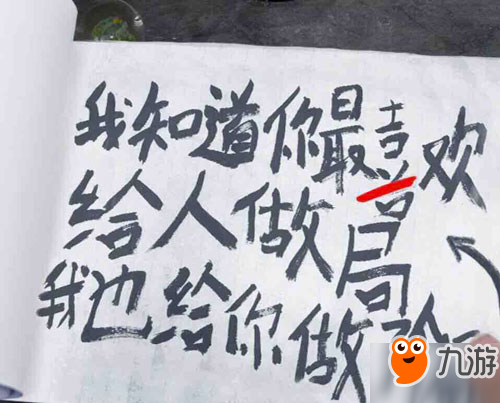 我知道你最喜欢
给人做局
我也给你做
九游